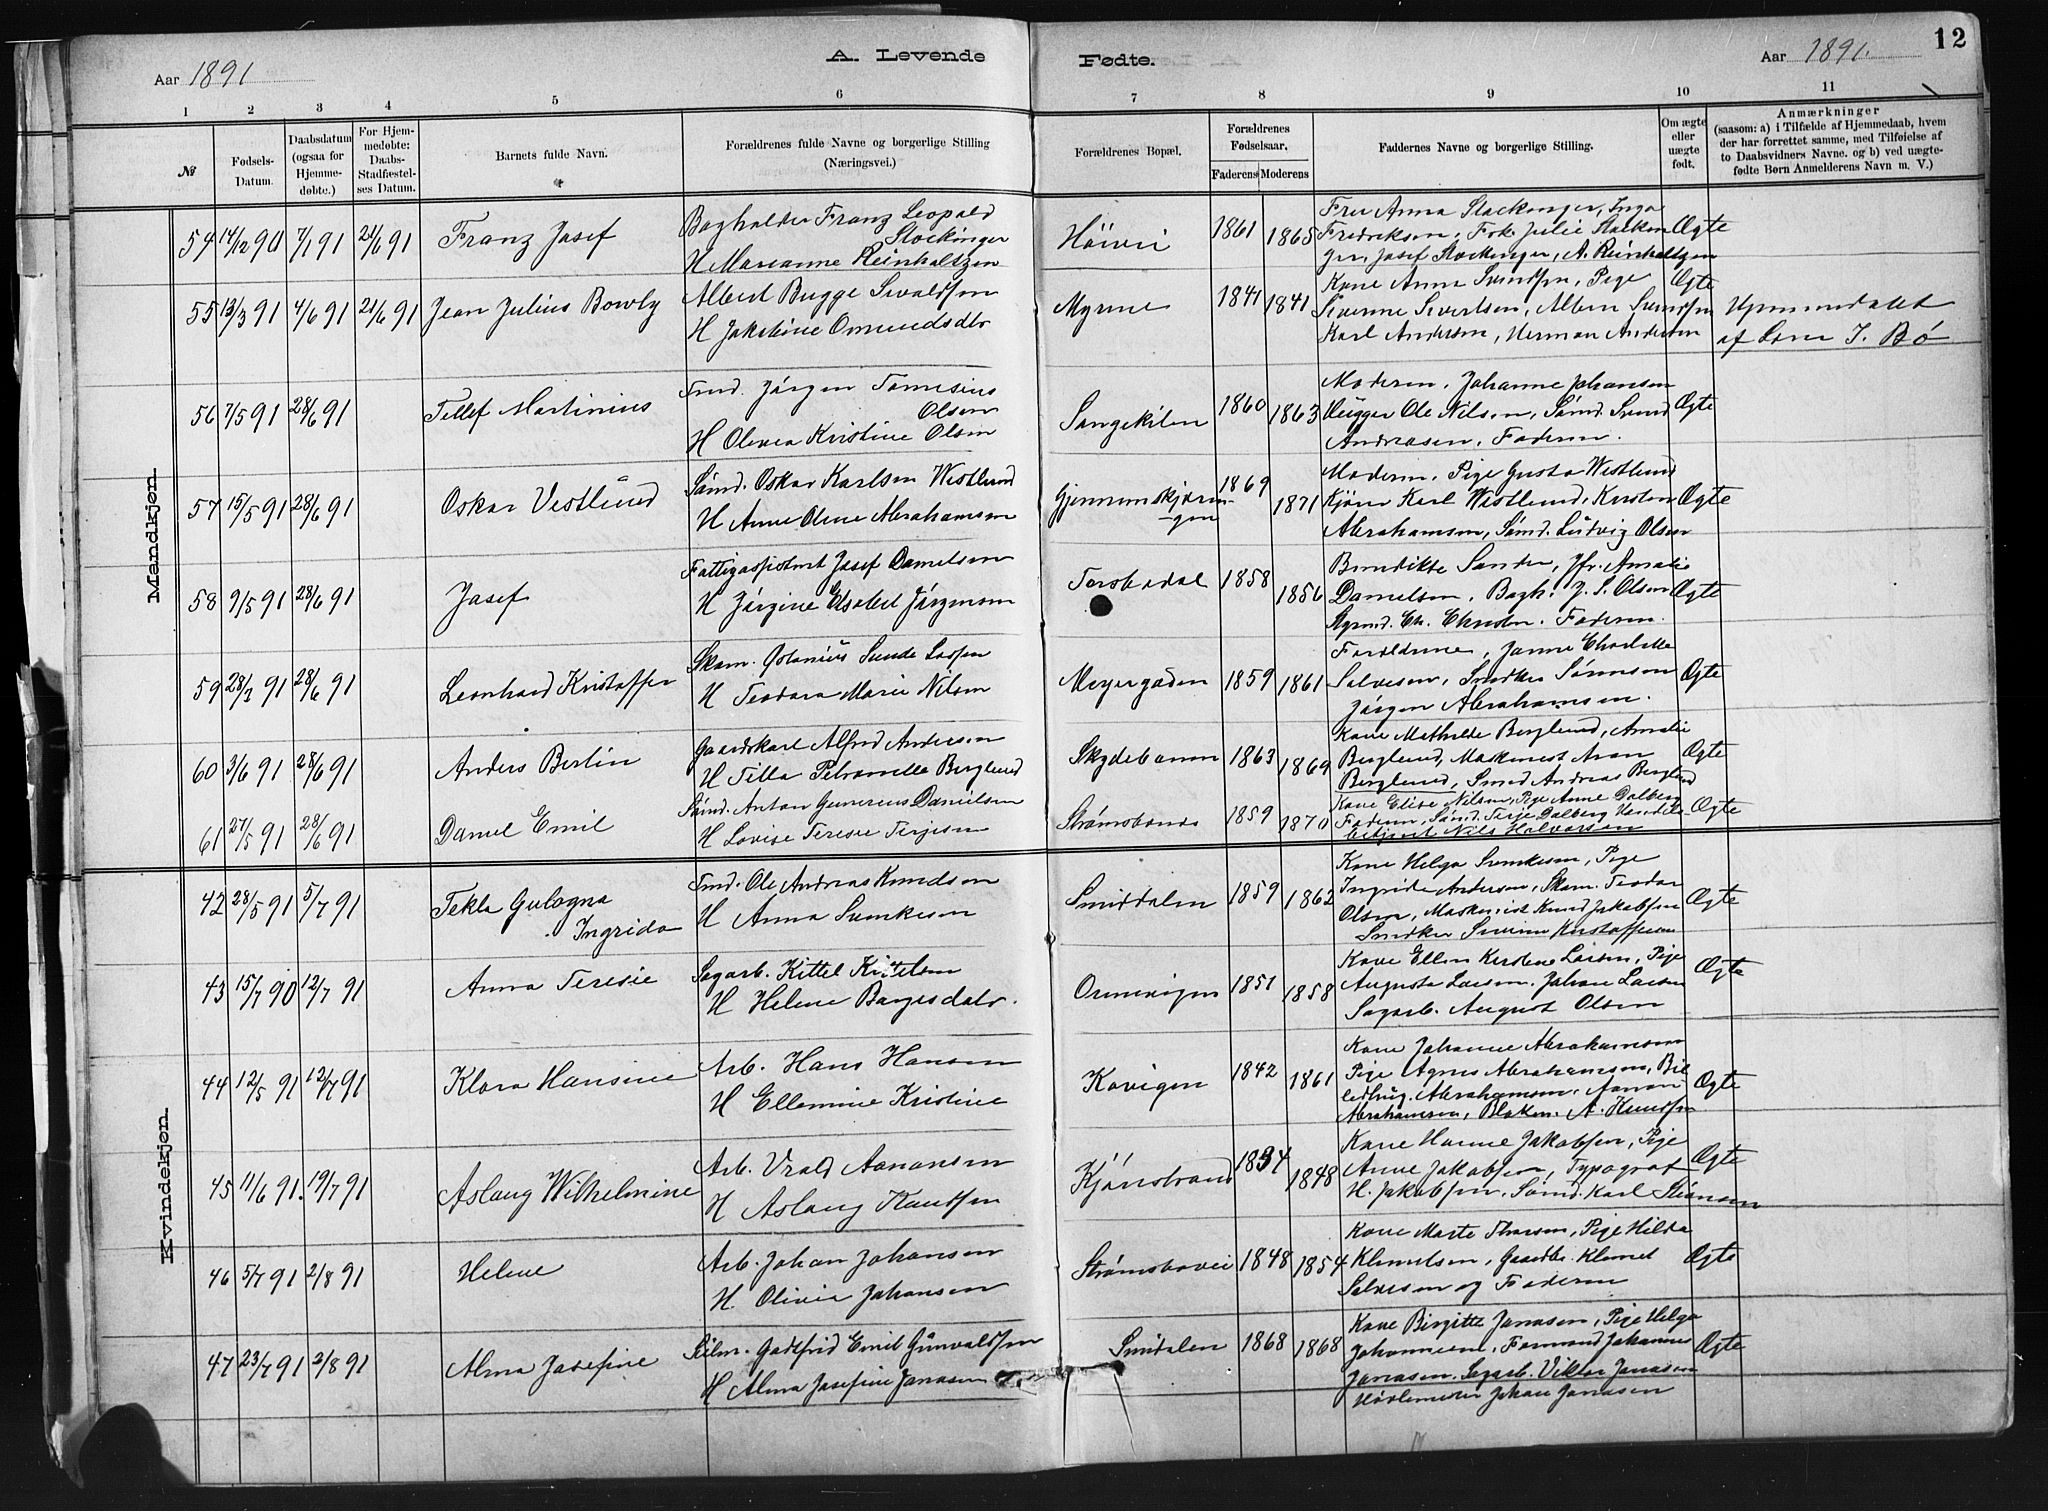 A. Levende
Fødte.
12
Aar 1891
Aar 1891.
1 2 3 4 5 6 7 8 9 10 11
№
Fødsels-
Datum.
Daabsdatum
(ogsaa for
Hjemme-
døbte.)
For Hjem-
medøbte:
Daabs-
Stadfæstel-
ses Datum.
Barnets fulde Navn.
Forældrenes fulde Navne og borgerlige Stilling
(Næringsvei.)
Forældrenes Bopæl.
Forældrenes
Fødselsaar.
Faderens Moderens
Faddernes Navne og borgerlige Stilling.
Om ægte
eller
uægte
født.
Anmærkninger
(saasom: a) i Tilfælde af Hjemmedaab, hvem
der har forrettet samme, med Tilføielse af
to Daabsvidners Navne. og b) ved uægte-
fødte Børn Anmelderens Navn m. V.)
Mandkjøn.
54 14/12 90 7/1 91 21/6 91 Franz Josef
Bogholder Franz Leopold
Stockinger
H Marianne Reinholtzen
Höivei 1861 1865
Fru Anna Stockinger, Inga
Fredriksen, Frk. Julie Stockin
ger, Josef Stockinger, A. Reinholtzen
Ægte
55 13/3 91 4/6 91 21/6 91 Jean Julius Bowly
Albert Bugge Sivaldsen
H Jakobine Omundsdtr
Myrene 1841 1841
Kone Anna Svendsen, Pige
Siverine Sivertsen, Albert Svendsen
Karl Andersen, Herman Andersen
Ægte
Hjemmedøbt
af Lars J. Bø
56 7/5 91 28/6 91 Tellef Martinius
Tmd. Jörgen Tomesius
Olsen
H Olevea Kristine Olsen
Songekilen 1860 1863
Moderen, Johanne Johansen
Ole Nilsen, Sömd. Svend
Andreasen, Faderen.
Ægte
57 15/5 91 28/6 91 Oskar Vestlund
Sömd. Oskar Karlsen Westlund
H Anne Olene Abrahamsen
1869 1871
Moderen, Pige Gusta Westlund
Karl Westlund, Kirsten
Abrahamsen, Sömd. Ludvig Olsen
Ægte
58 9/5 91 28/6 91 Josef
Josef Danielsen
H Jörgine Elsabet Jörgensen
Torsbudal 1858 1856
Benedikte Sander, Jfr. Amalie
Danielsen, Bogh. J. S. Olsen
Styrmd. Ch. Christen. Faderen.
Ægte
59 28/3 91 28/6 91 Leonhard Kristoffer
Skom. Gstanius Sunde Larsen
H Teodora Marie Nilsen
Meyergaden 1859 1861
Forældrene, Janne Charlotte
Salvesen, Snedker Sörensen
Jörgen Abrahamsen.
Ægte
60 3/6 91 28/6 91 Anders Bertin
Gaardskarl Alfred Andersen
H Tilla Petronelle Berglund
Skydebanen 1863 1869
Kone Mathilde Berglund, Amalie
Berglund, Maskinist Aron
Berglund, Smed Andreas Berglund
Ægte
61 27/5 91 28/6 91 Daniel Emil
Sömd. Anton Gunerius Danielsen
H Lovise Teresie Terjesen
Strömsbonæs 1859 1870
Kone Elise Nilsen, Pige Anne Dalberg
Faderen, Sömd. Terje Dalberg
betjent Nils Halversen
Ægte
Kvindekjøn.
42 28/5 91 5/7 91 Tekla Gulogna
Ingrida
Tmd. Ole Andreas Knudsen
H Anna Svenkesen
Smiddalen 1859 1862
Kone Helga Svenkesen, Pige
Ingrida Andersen, Skom. Teodor
Olsen, Maskinist Knud Jakobsen
Snedker Severin Kristoffersen
Ægte
43 15/7 90 12/7 91 Anna Teresie
Sagarb. Kittel Kittelsen
H Helene Borgesdatr.
Ormevigen 1851 1858
Kone Ellen Kirstine Larsen, Pige
Augusta Larsen, Johan Larsen
Sagarb. August Olsen
Ægte
44 12/5 91 12/7 91 Klara Hansine
Arb. Hans Hansen
H Ellemine Kristine
Kovigen 1842 1861
Kone Johanne Abrahamsen
Pige Agnes Abrahamsen, Bil
ledhug. Abrahamsen, Aanon
Abrahamsen, Blokm. A. Knudsen
Ægte
45 11/6 91. 19/7 91 Aslaug Wilhelmine
Arb. Vrald Aanonsen
H Aslaug Knudsen
Kjönstrand 1834 1848
Kone Hanne Jakobsen, Pige
Anne Jakobsen, Typograf
H. Jakobsen, Sömd. Karl Stiansen
Ægte
46 5/7 91 2/8 91 Helene
Arb. Johan Johansen
H. Olivia Johansen
Strömsbovei 1848 1854
Kone Marte Thorsen, Pige Hilda
Klemetsen, Gaardbr. Klemet
Salvesen og Faderen
Ægte
47 23/7 91 2/8 91 Alma Josefine
Godtfrid Emil Gunvaldsen
H Alma Josefine Jonasen
Smidalen 1868 1868
Kone Birgitte Jonasen, Pige Helga
Johannesen, Formand Johannes
Jonasen, Sagarb. Viktor Jonasen
Johan Jonasen
Ægte